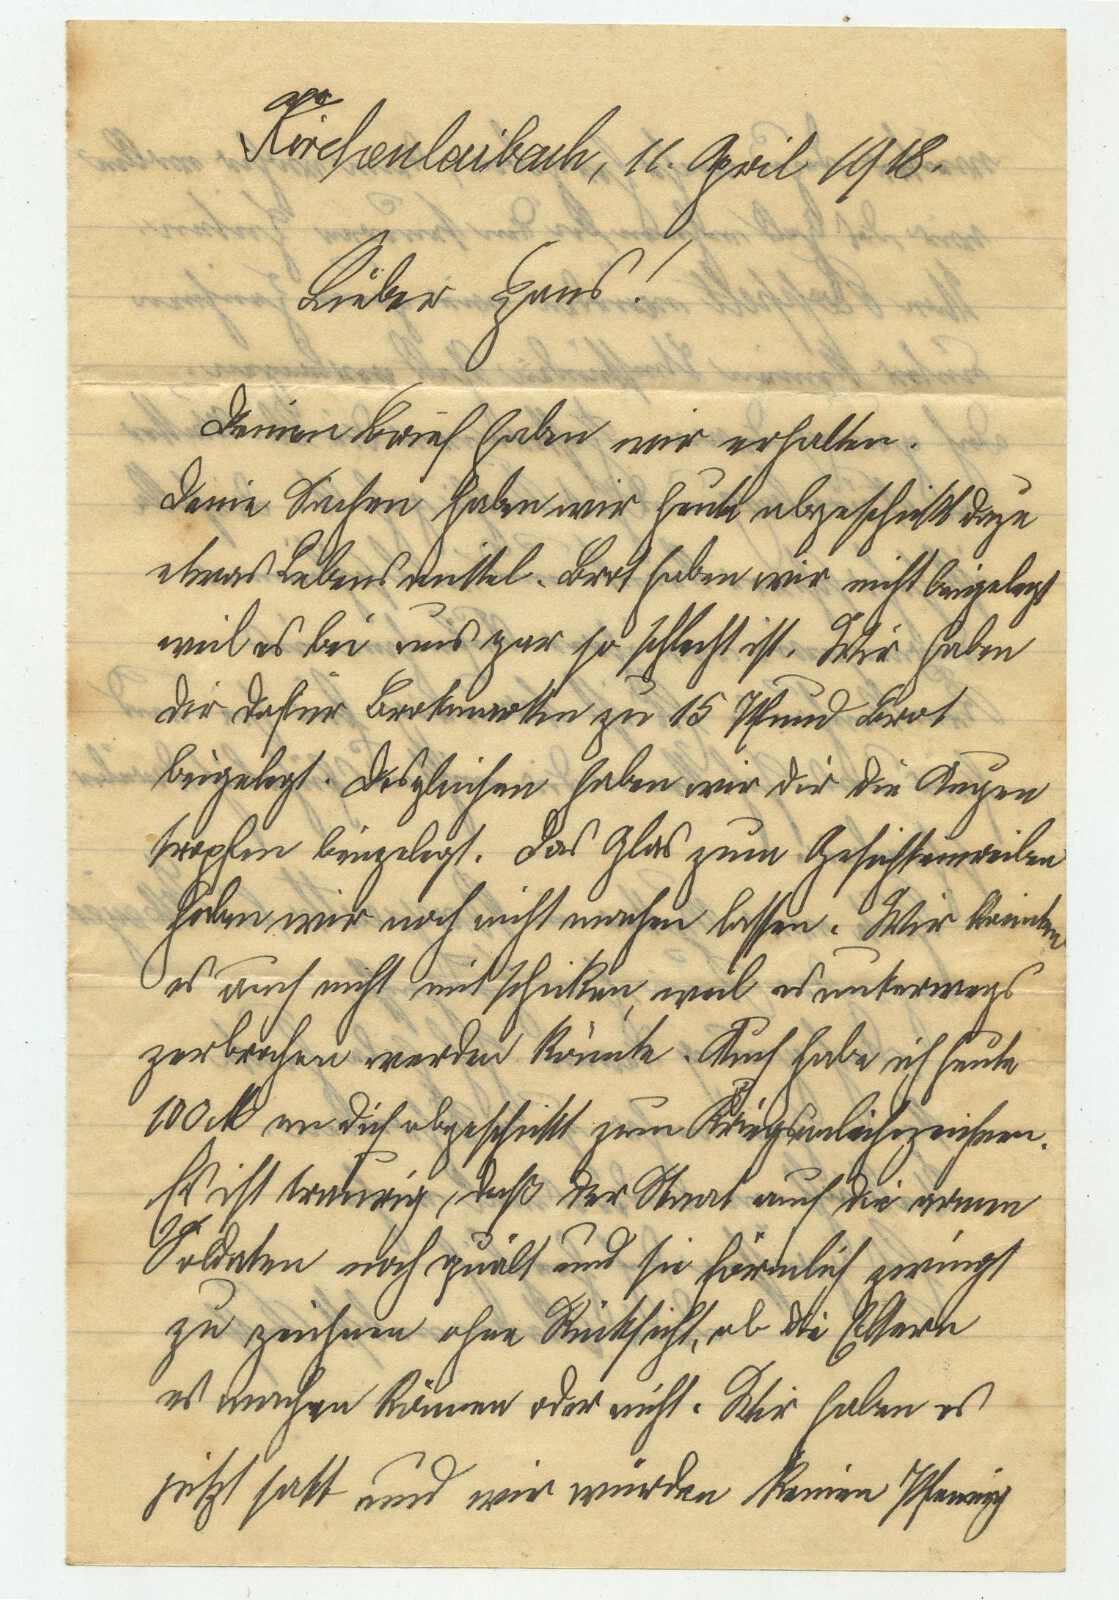 Kirchenlaibach, 11. April 1918.
Lieber Hans!
Deinen Brief haben wir erhalten.
Deine Sachen haben wir heute abgeschickt dazu
etwas Lebensmittel. Brot haben wir nicht beigelegt
weil es bei uns gar so schlecht ist. Wir haben
dir dafür Brotmarken zu 15 Pfund Brot
beigelegt. Desgleichen haben wir dir die Augen
tropfen beigelegt. Das Glas zum
haben wir noch nicht machen lassen. Wir könnten
es auch nicht mitschicken, weil es unterwegs
zerbrochen werden könnte. Auch habe ich heute
100 M an dich abgeschickt zum Kriegsanleihezeichnen.
Es ist traurig, daß der Staat auch die armen
Soldaten noch quält und sie förmlich zwingt
zu zeichnen ohne Rücksicht, ob die Eltern
es machen können oder nicht. Wir haben es
jetzt satt und wir würden keinen Pfennig